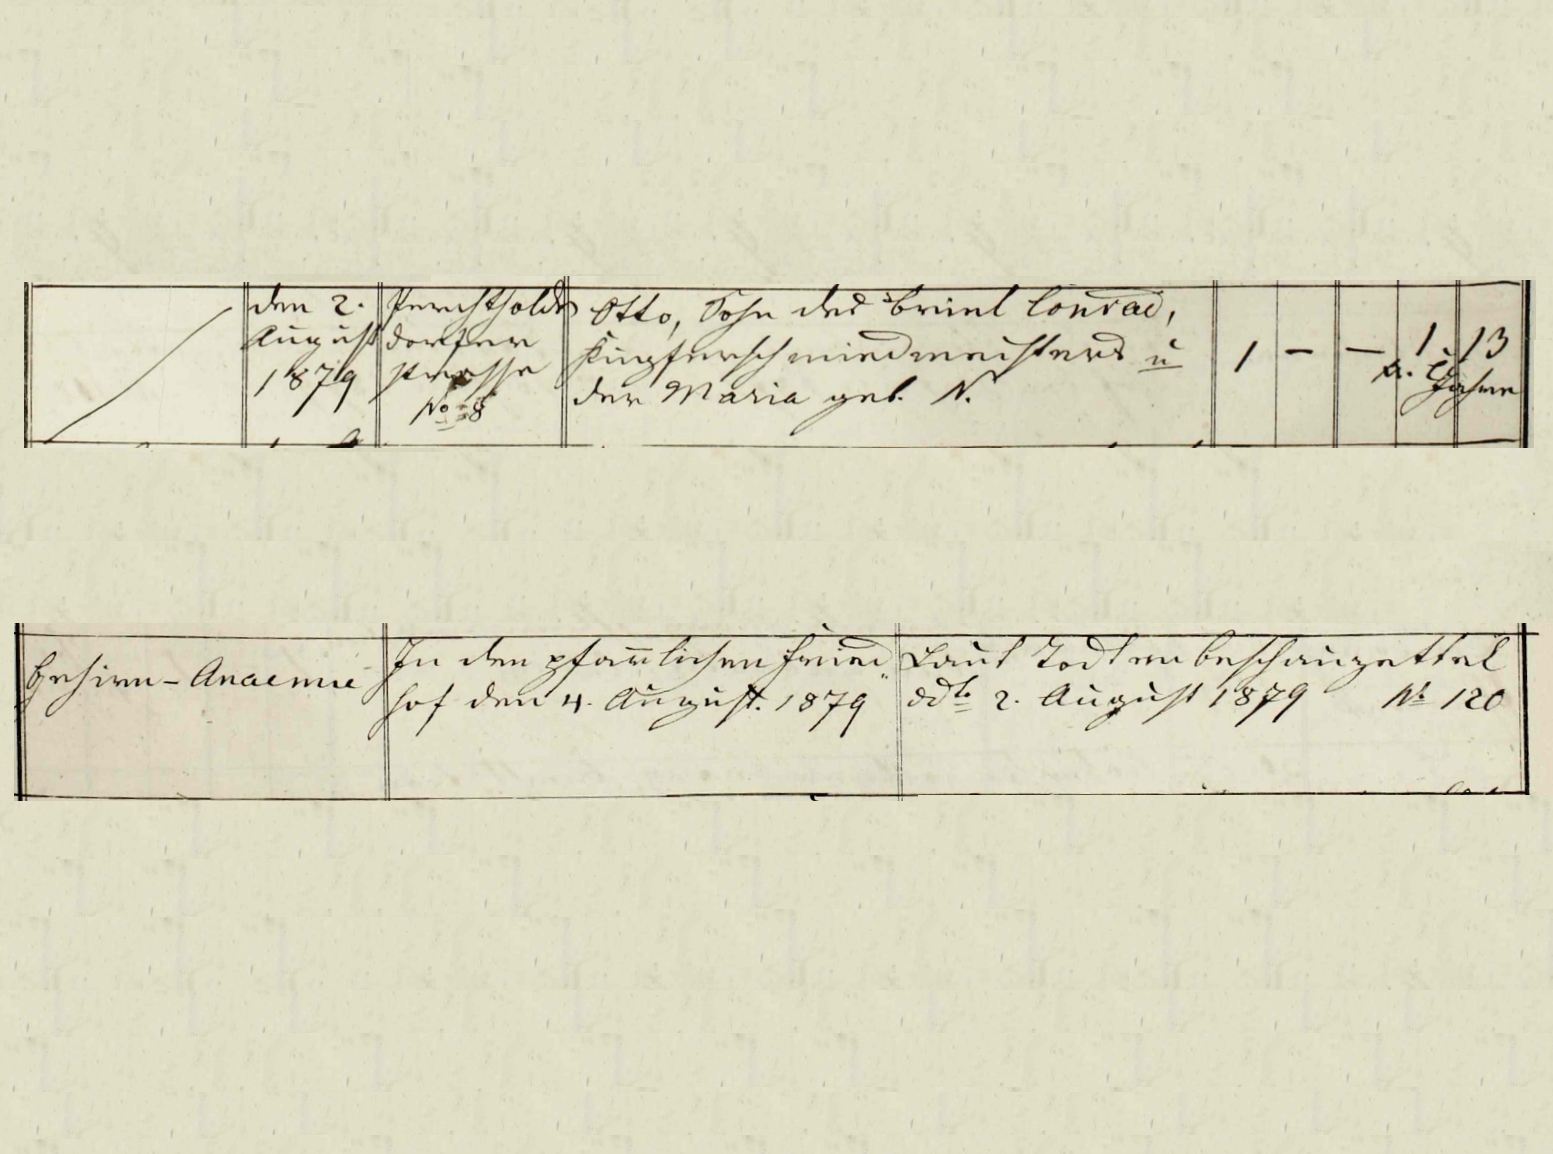 den 2.
August
1879
Perchtholds
dorfer
strasse
No 8
Otto, Sohn des Briel Conrad,
Kupferschmiedmeisters u
der Maria geb. N.
1 – – 1 13
Jahre
Gehirn-Anaemie
In den pfarrlichen Fried
hof den 4. August. 1879
Laut Todtenbeschauzettel
ddto 2. August 1879 No 120